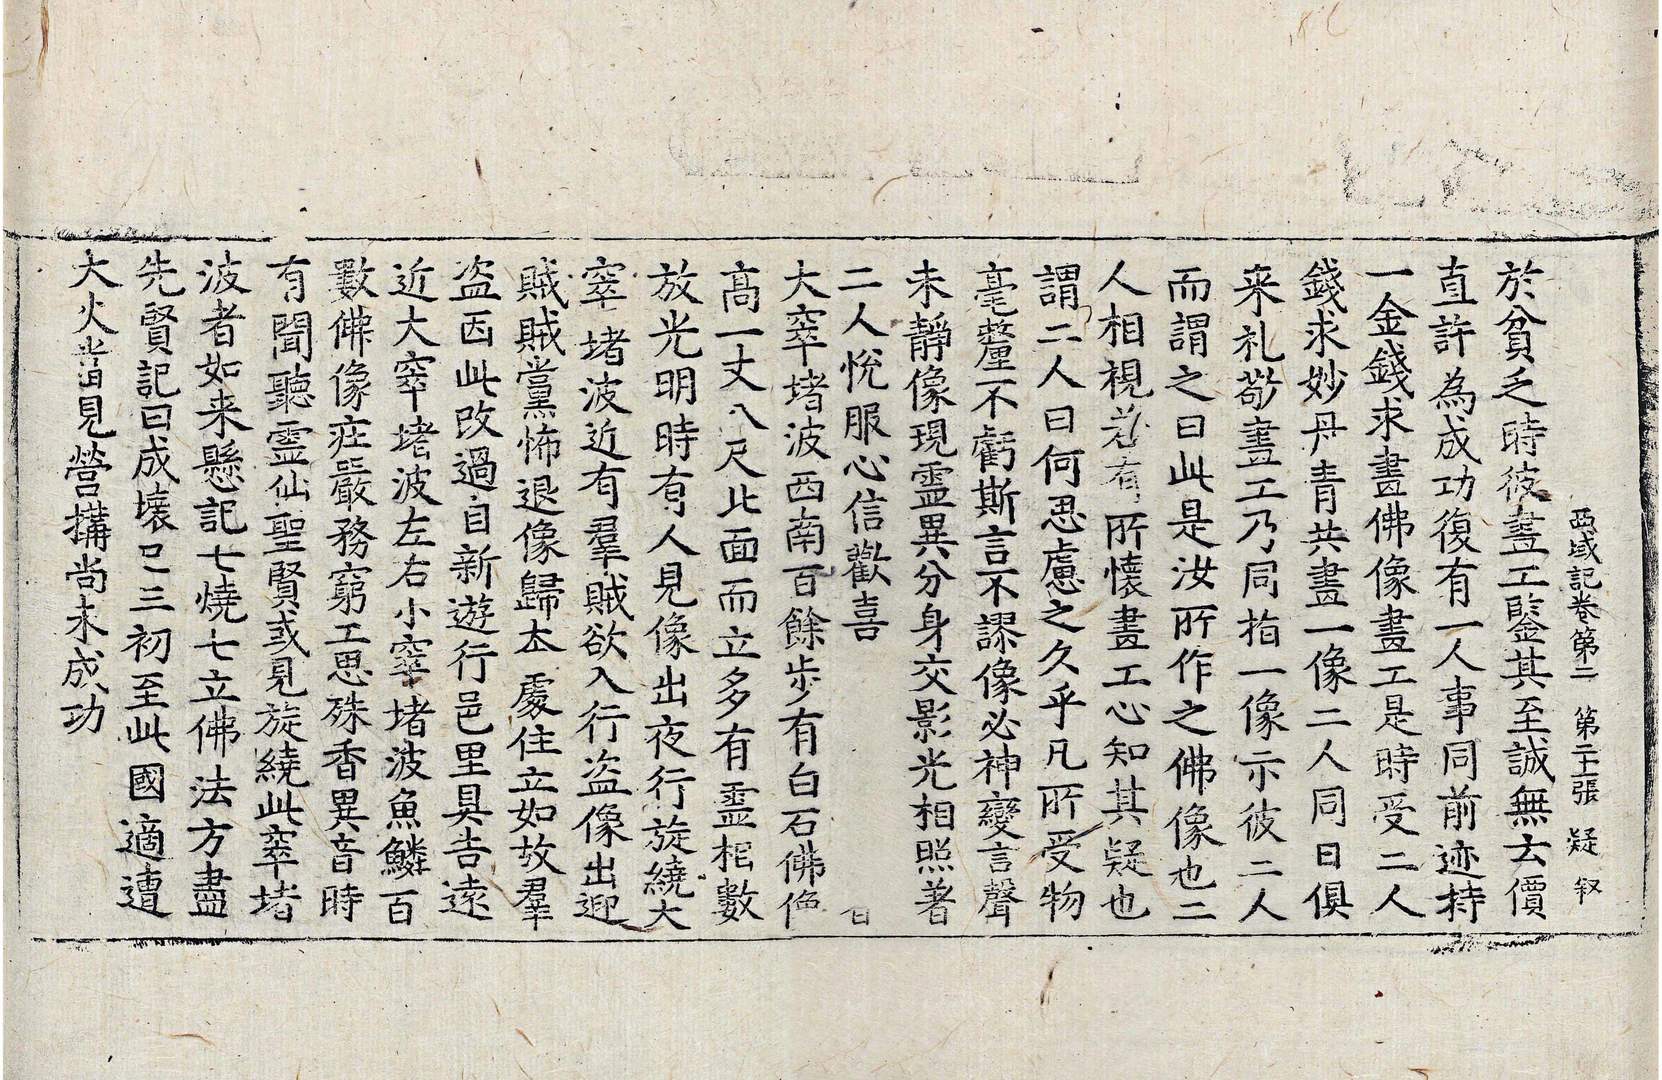 西域記卷第二 第二十一張 疑 叙
於貧乏時彼畫工鍳其至誠無云價
直許為成功復有一人事同前迹持
一金錢求畫佛像畫工是時受二人
錢求妙丹青共畫一像二人同日俱
来礼敬畫工乃同指一像示彼二人
而謂之曰此是汝所作之佛像也二
人相視若有所懷畫工心知其疑也
謂二人曰何思慮之久乎凡所受物
毫釐不虧斯言不謬像必神變言聲
未靜像現靈異分身交影光相照著
二人悅服心信歡喜
大窣堵波西南百餘步有白石佛像
高一丈八尺北面而立多有靈相數
放光明時有人見像出夜行旋繞大
窣堵波近有羣賊欲入行盜像出迎
賊賊黨怖退像歸本處住立如故羣
盜因此改過自新遊行邑里具告遠
近大窣堵波左右小窣堵波魚鱗百
數佛像莊嚴務窮工思殊香異音時
有聞聽靈仙聖賢或見旋繞此窣堵
波者如来懸記七燒七立佛法方盡
先賢記曰成壞已三初至此國適遭
大火當見營搆尚未成功